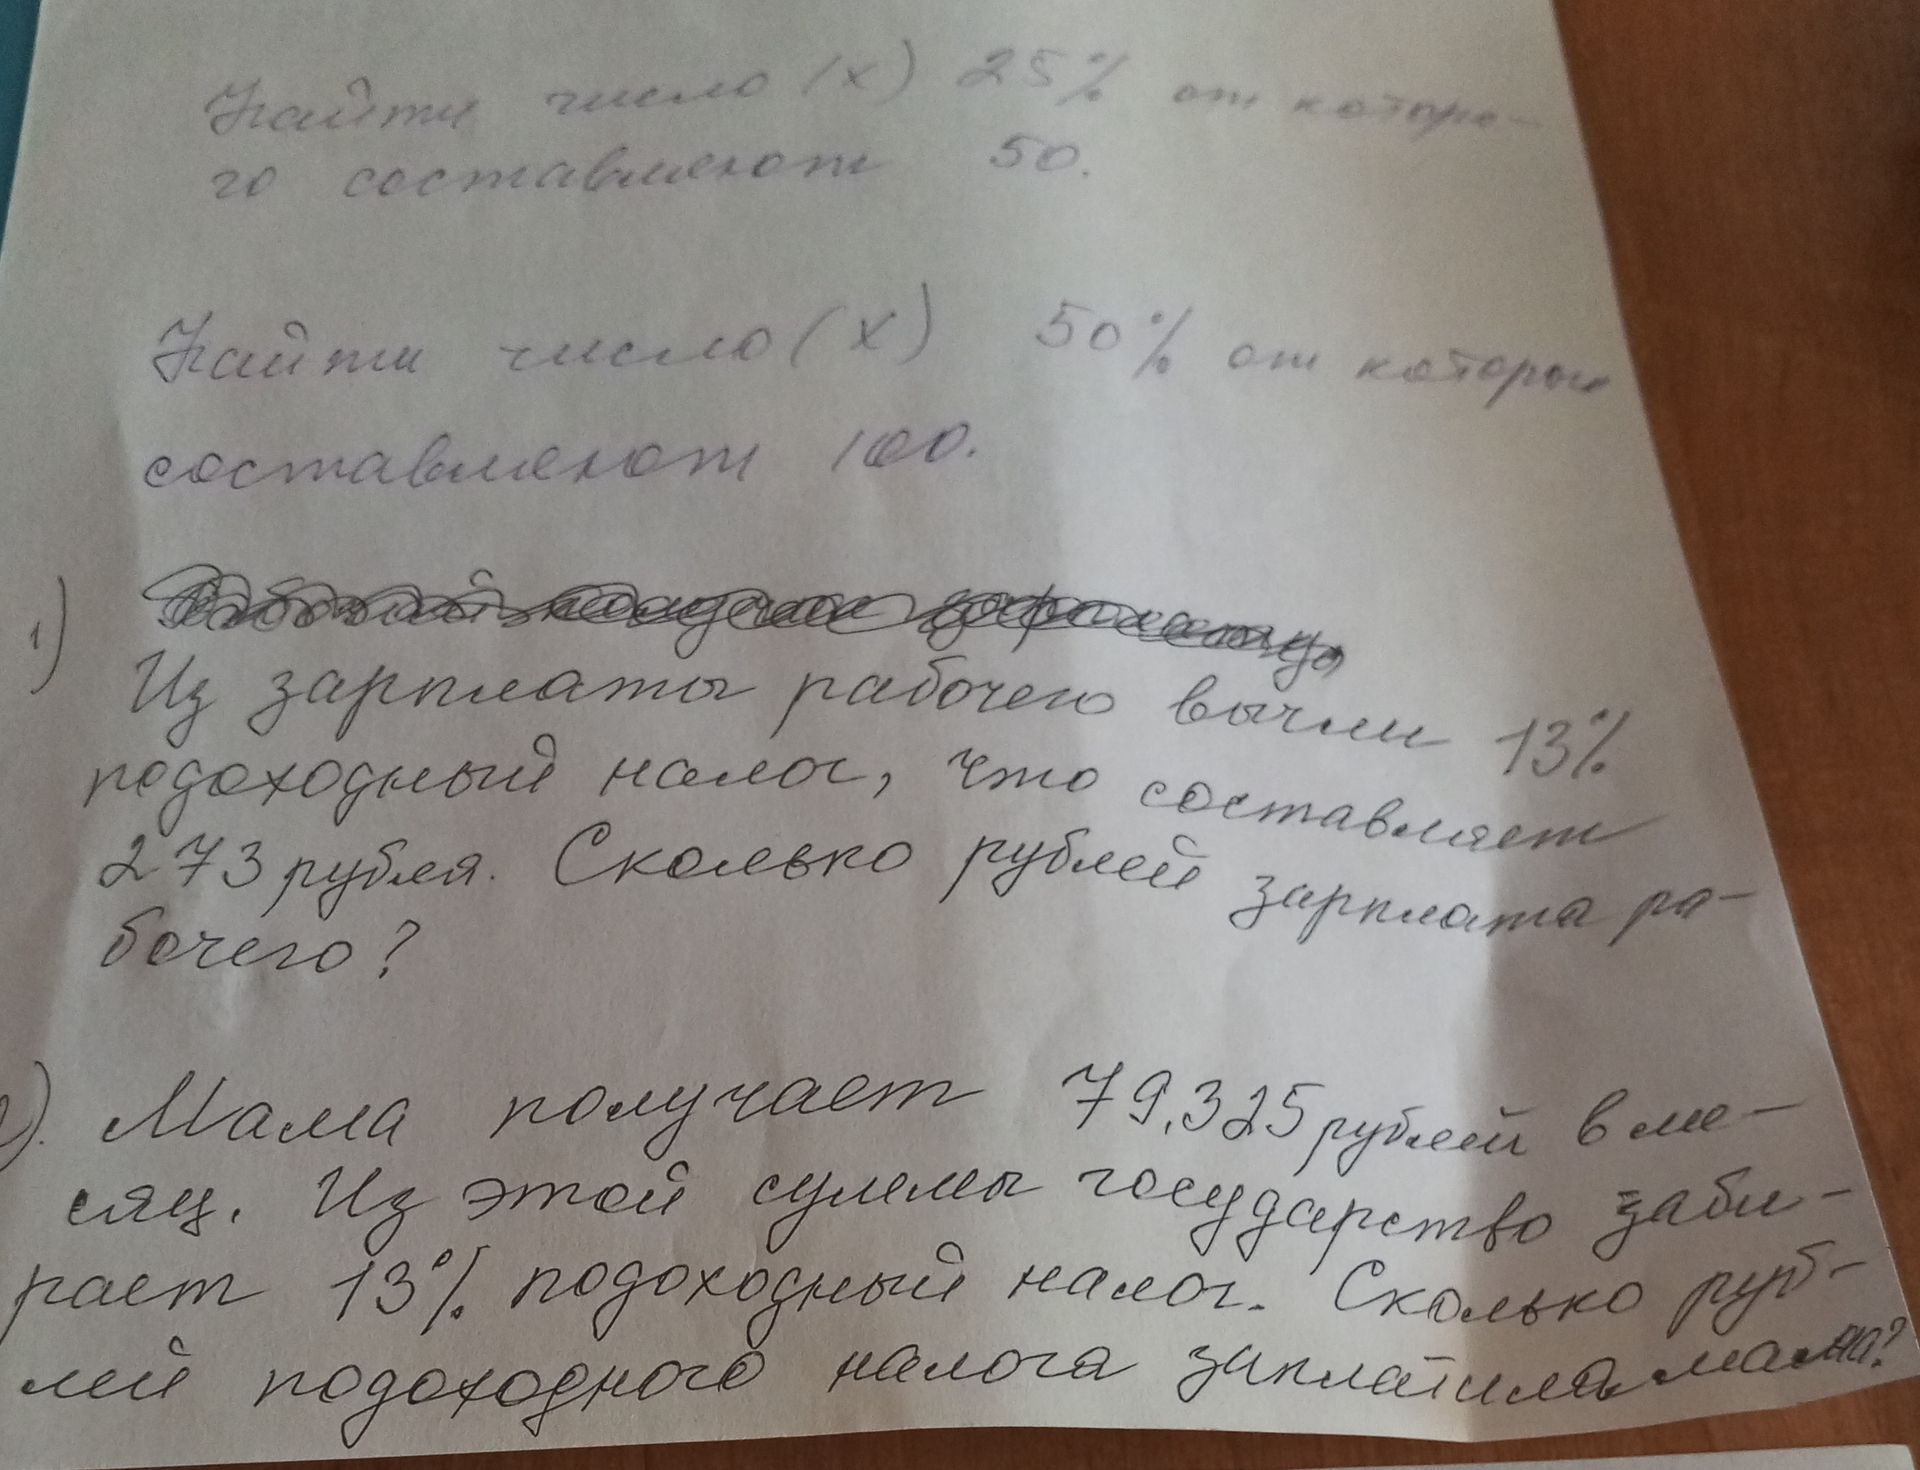 Найти число (х) 25% от которо-
го составляют 50.
Найти число (х) 50% от которых
составляют 100.
1)
Из зарплаты рабочего вычли 13%
подоходный налог, что составляет
273 рубля. Сколько рублей зарплата ра-
бочего?
2). Мама получает 79.325 рублей в ме-
сяц. Из этой суммы государство заби-
рает 13% подоходный налог. Сколько руб-
лей подоходного налога заплатила мама?